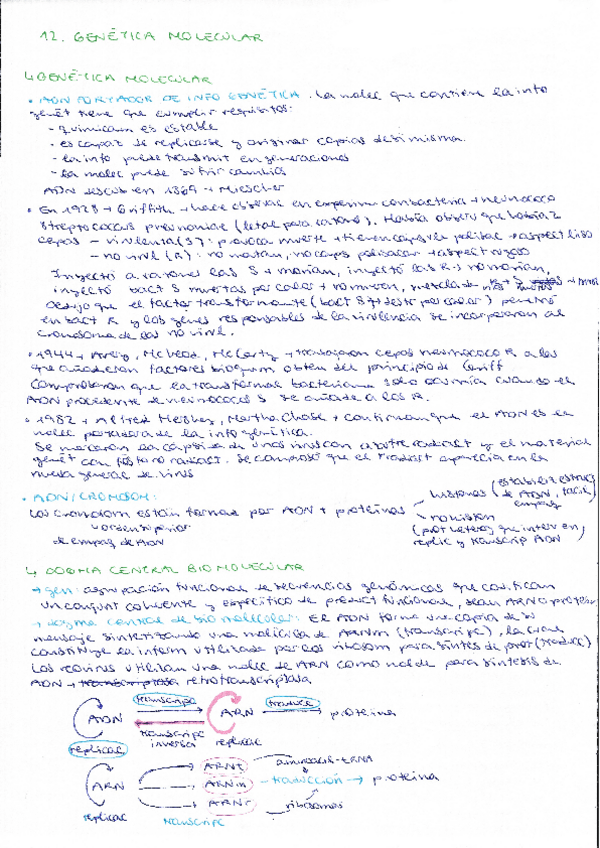 12. GENÉTICA MOLECULAR
↳ GENÉTICA MOLECULAR
• ADN PORTADOR DE INFO GENÉTICA. La molec que contiene la info
genét tiene que cumplir requisitos:
- químicam es estable
- es capaz de replicarse y originar copias de si misma.
- la info puede transmit en generaciones
- la molec puede sufrir cambios
ADN descub en 1869 → Miescher
• En 1928 → Griffith → hace observac en experim con bacteria → neumococo
Streptococcus pneumoniae (letal para ratones). Había observ que había 2
cepas - virulenta (S): provoca muerte + tienen cápsula polisac → aspect liso
- no virul (R): no matan, no caps polisacar → aspect rugoso
Inyectó a ratones las S → morían, inyectó las R → no morían,
inyectó bact S muertas por calor → no mueren, mezcla de
Dedujo que el factor transformante (bact S destr por calor) penetró
en bact R y los genes responsables de la virulencia se incorporaron al
cromosoma de los no virul.
• 1944 → Avery, McLeod, McCarty → trabajaron cepas neumococo R a las
que añadieron factores bioquim obten del principio de Griff
Comprobaron que la transformac bacteriana solo ocurría cuando el
ADN procedente de neumococos S se añadía a los R.
• 1952 → Alfred Hershey, Martha Chase → confirman que el ADN es la
molec portadora de la info genética.
Se marcaron la cápsida de unos virus con azufre radiact y el material
genét con fósforo radiact. Se comprobó que el P radiact aparecía en la
nueva generac de virus
• ADN/CROMOSOM:
Los cromosom están formad por ADN + proteínas
histonas (establece estruct de ADN, facil empaq
no histon
(prot heterog que interv en replic y transcrip ADN
↳ orden superior
de empaq de ADN
↳ DOGMA CENTRAL BIO MOLECULAR
→ gen: agrupación funcional de secuencias genómicas que codifican
un conjunt coherente y específico de product funcional, sean ARN o proteín
→ dogma central de bio molecular: El ADN forma una copia de su
mensaje sintetizando una molécula de ARNm (transcripc), la cual
constituye la inform utilizada por los ribosom para síntes de prot (traducc)
Los retovirus utilizan una molec de ARN como molde para síntesis de
ADN → retrotranscriptasa
transcripc traducc
ADN ARN proteína
transcripc
inversa
replicac replicac
ARNt aminoacil-tRNA
ARN ARNm → traducción → proteína
ARNr ribosomas
replicac transcripc